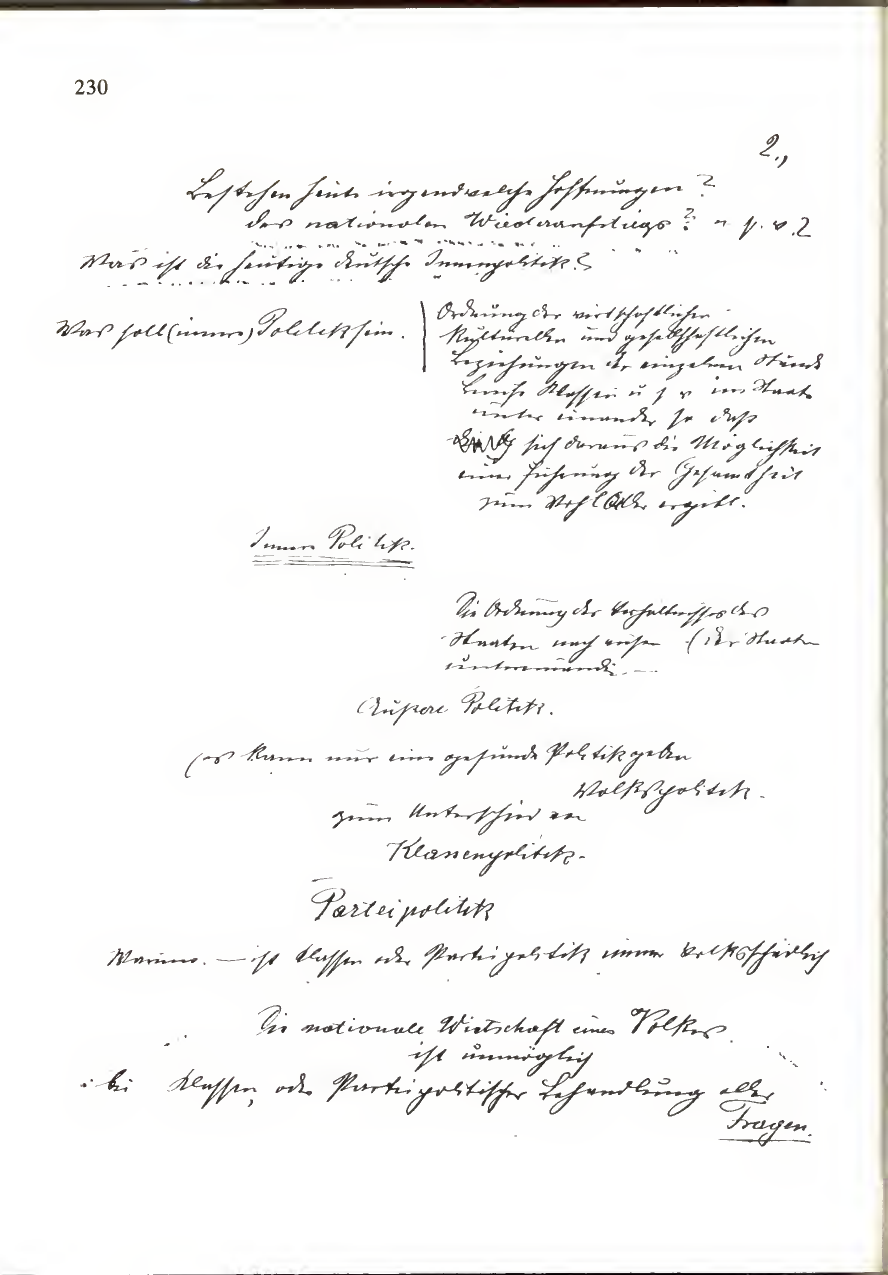 230
2.,
Bestehen heute irgendwelche Hoffnungen?
des nationalen Wiederaufstiegs? u s. w. ?
Was ist die heutige deutsche Innenpolitik?
Was soll (innere) Politik sein.
Ordnung der wirtschaftlichen
kulturellen und gesellschaftlichen
Beziehungen der einzelnen Stände
Berufe Klassen u s w im Staate
unter einander so daß
sich daraus die Möglichkeit
einer Führung der Gesamtheit
zum Wohl Aller ergibt.
Innere Politik.
Die Ordnung des Verhältnisses des
Staaten nach außen (der Staaten
untereinander. —
Äußere Politik.
(es kann nur eine gesunde Politik geben
Volkspolitik.
zum Unterschied von
Klassenpolitik.
Parteipolitik
Warum. — ist Klassen oder Parteipolitik immer Volksschädlich
Die nationale Wirtschaft eines Volkes
ist unmöglich
bei Klassen, oder Parteipolitischer Behandlung aller
Fragen.